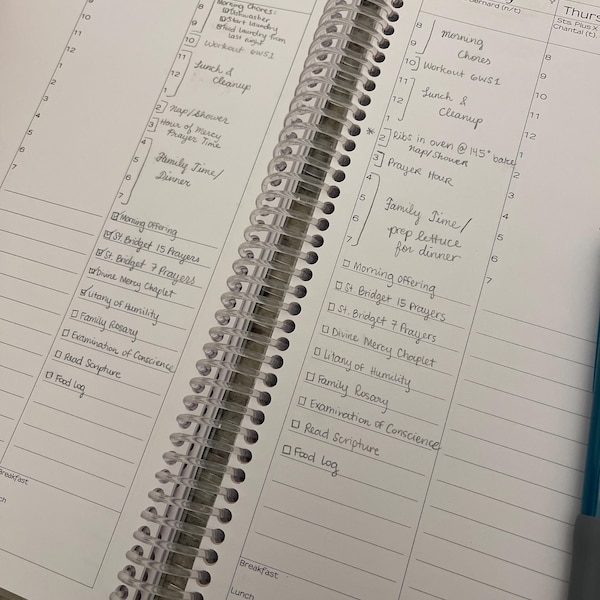 8
9
10
11
12
1
2
3
4
5
6
7
8
9
10
11
12
1
2
3
4
5
6
7
Morning Chores:
Dishwasher
Start laundry
Fold laundry from
last night
Workout 6WS1
Lunch &
Cleanup
Nap/Shower
Hour of Mercy
Prayer Time
Family Time/
Dinner
Morning Offering
St. Bridget 15 Prayers
St. Bridget 7 Prayers
Divine Mercy Chaplet
Litany of Humility
Family Rosary
Examination of Conscience
Read Scripture
Food log
Breakfast
Lunch
Bernard (n/t)
8
9
10
11
12
1
2
3
4
5
6
7
Morning
Chores
Workout 6WS1
Lunch &
Cleanup
* Ribs in oven @ 145° bake
nap/Shower
Prayer Hour
Family Time/
prep lettuce
for dinner
Morning Offering
St. Bridget 15 Prayers
St. Bridget 7 Prayers
Divine Mercy Chaplet
Litany of Humility
Family Rosary
Examination of Conscience
Read Scripture
Food log
Breakfast
Lunch
Thurs
Sts. Pius X
Chantal (t)
8
9
10
11
12
1
2
3
4
5
6
7